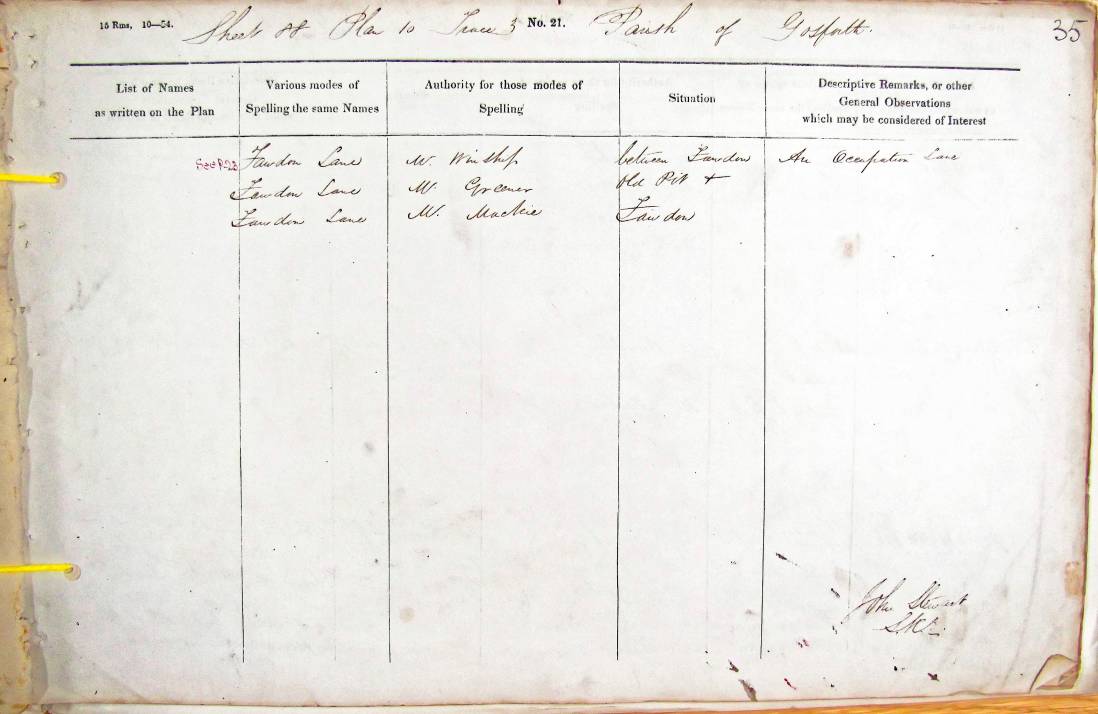 15 Rms, 10—54.
Sheet 88 Plan 10 Trace 3 No. 21. Parish of Gosforth.
35
List of Names
as written on the Plan
Various modes of
Spelling the same Names
Authority for those modes of
Spelling
Situation
Descriptive Remarks, or other
General Observations
which may be considered of Interest
See P.23 Fawdon Lane Mr. Winship between Fawdon An Occupation Lane
Fawdon Lane Mr. Greener Old Pit +
Fawdon Lane Mr. Mackie Fawdon
John Stewart